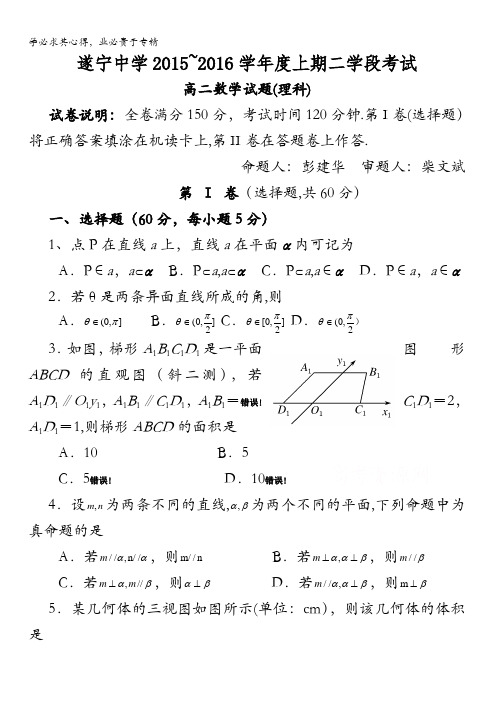 学必求其心得，业必贵于专精
遂宁中学2015~2016学年度上期二学段考试
高二数学试题(理科)
试卷说明：全卷满分150分，考试时间120分钟.第I卷(选择题)
将正确答案填涂在机读卡上,第II卷在答题卷上作答.
命题人：彭建华 审题人：柴文斌
第 I 卷（选择题,共60分）
一、选择题（60分，每小题5分）
1、点P在直线a上，直线a在平面α内可记为
A．P∈a，a⊂α B．P⊂a,a⊂α C．P⊂a,a∈α D．P∈a，a∈α
2．若θ是两条异面直线所成的角,则
A．θ∈(0,π] B．θ∈(0,π/2] C．θ∈[0,π/2] D．θ∈(0,π/2)
3．如图，梯形A₁B₁C₁D₁是一平面图形
ABCD的直观图（斜二测），若
A₁D₁∥O₁y₁，A₁B₁∥C₁D₁，A₁B₁＝错误! C₁D₁＝2，
A₁D₁＝1,则梯形ABCD的面积是
y₁
A₁
B₁
D₁ O₁ C₁ x₁
A．10 B．5
C．5错误! D．10错误!
4．设m,n为两条不同的直线,α,β为两个不同的平面,下列命题中为
真命题的是
A．若m//α,n//α，则m//n B．若m⊥α,α⊥β，则m//β
C．若m⊥α,m//β，则α⊥β D．若m//α,α⊥β，则m⊥β
5．某几何体的三视图如图所示(单位：cm)，则该几何体的体积
是